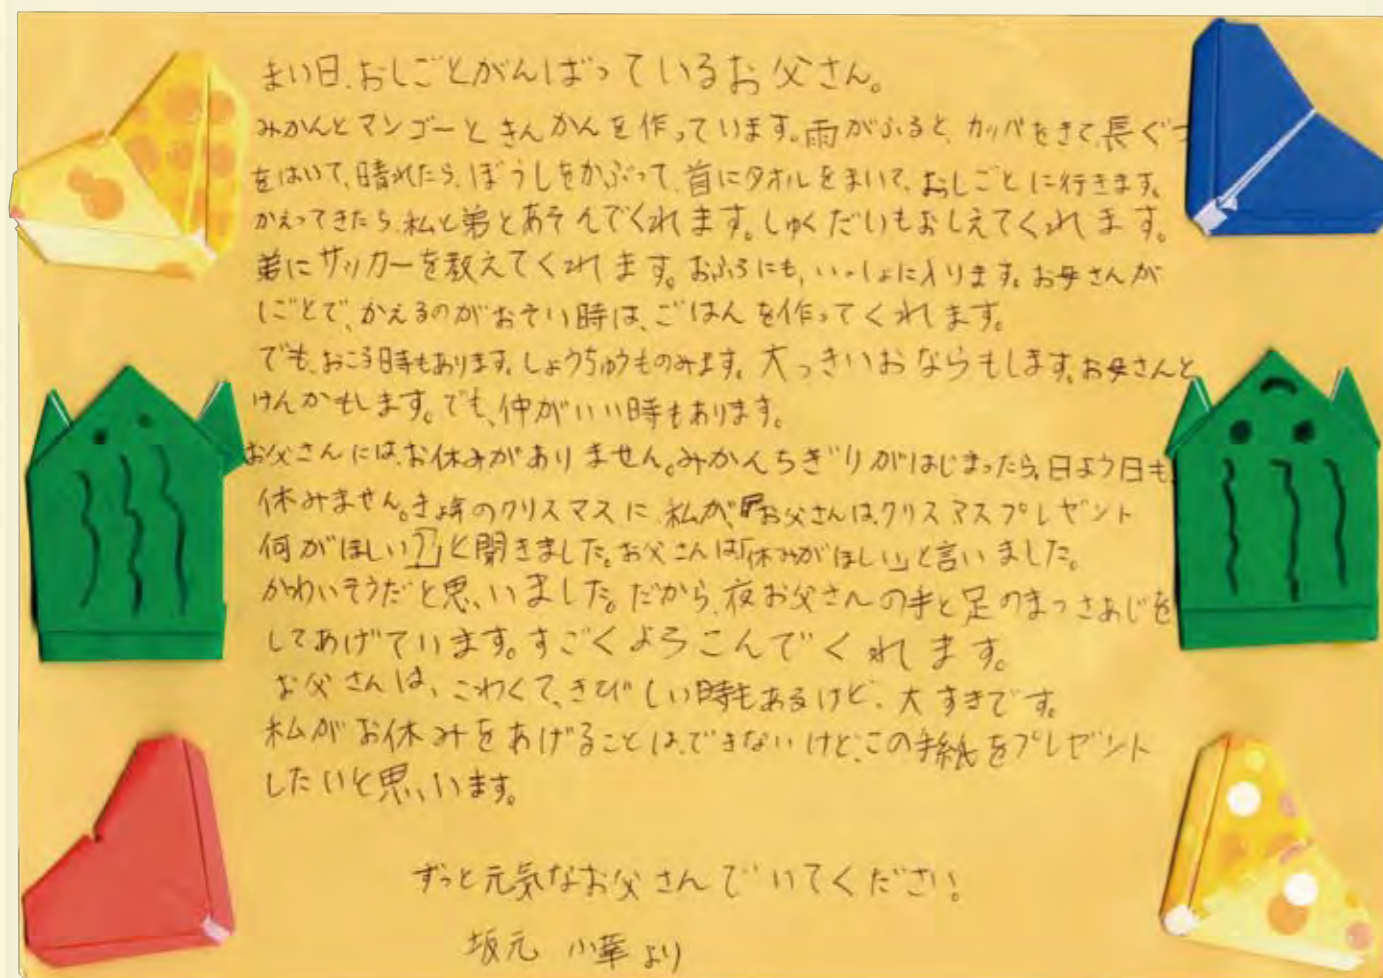 まい日、おしごとがんばっているお父さん。
みかんとマンゴーときんかんを作っています。雨がふると、カッパをきて、長ぐつ
をはいて、晴れたら、ぼうしをかぶって、首にタオルをまいて、おしごとに行きます。
かえってきたら、私と弟とあそんでくれます。しゅくだいもおしえてくれます。
弟にサッカーを教えてくれます。おふろにも、いっしょに入ります。お母さんが
しごとで、かえるのがおそい時は、ごはんを作ってくれます。
でも、おこる時もあります。しょうちゅうものみます。大っきいおならもします。お母さんと
けんかもします。でも、仲がいい時もあります。
お父さんには、お休みがありません。みかんちぎりがはじまったら、日よう日も、
休みません。きょ年のクリスマスに、私が、『お父さんは、クリスマスプレゼント
何がほしい?』と聞きました。お父さんは「休みがほしい」と言いました。
かわいそうだと思いました。だから、夜お父さんの手と足のまっさあじを
してあげています。すごくよろこんでくれます。
お父さんは、こわくて、きびしい時もあるけど、大すきです。
私がお休みをあげることは、できないけど、この手紙をプレゼント
したいと思います。
ずっと元気なお父さんでいてください。
坂元 小華より